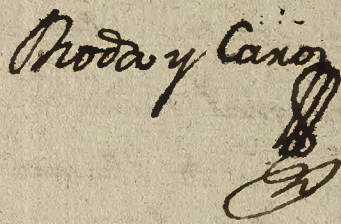 Roda y Cano